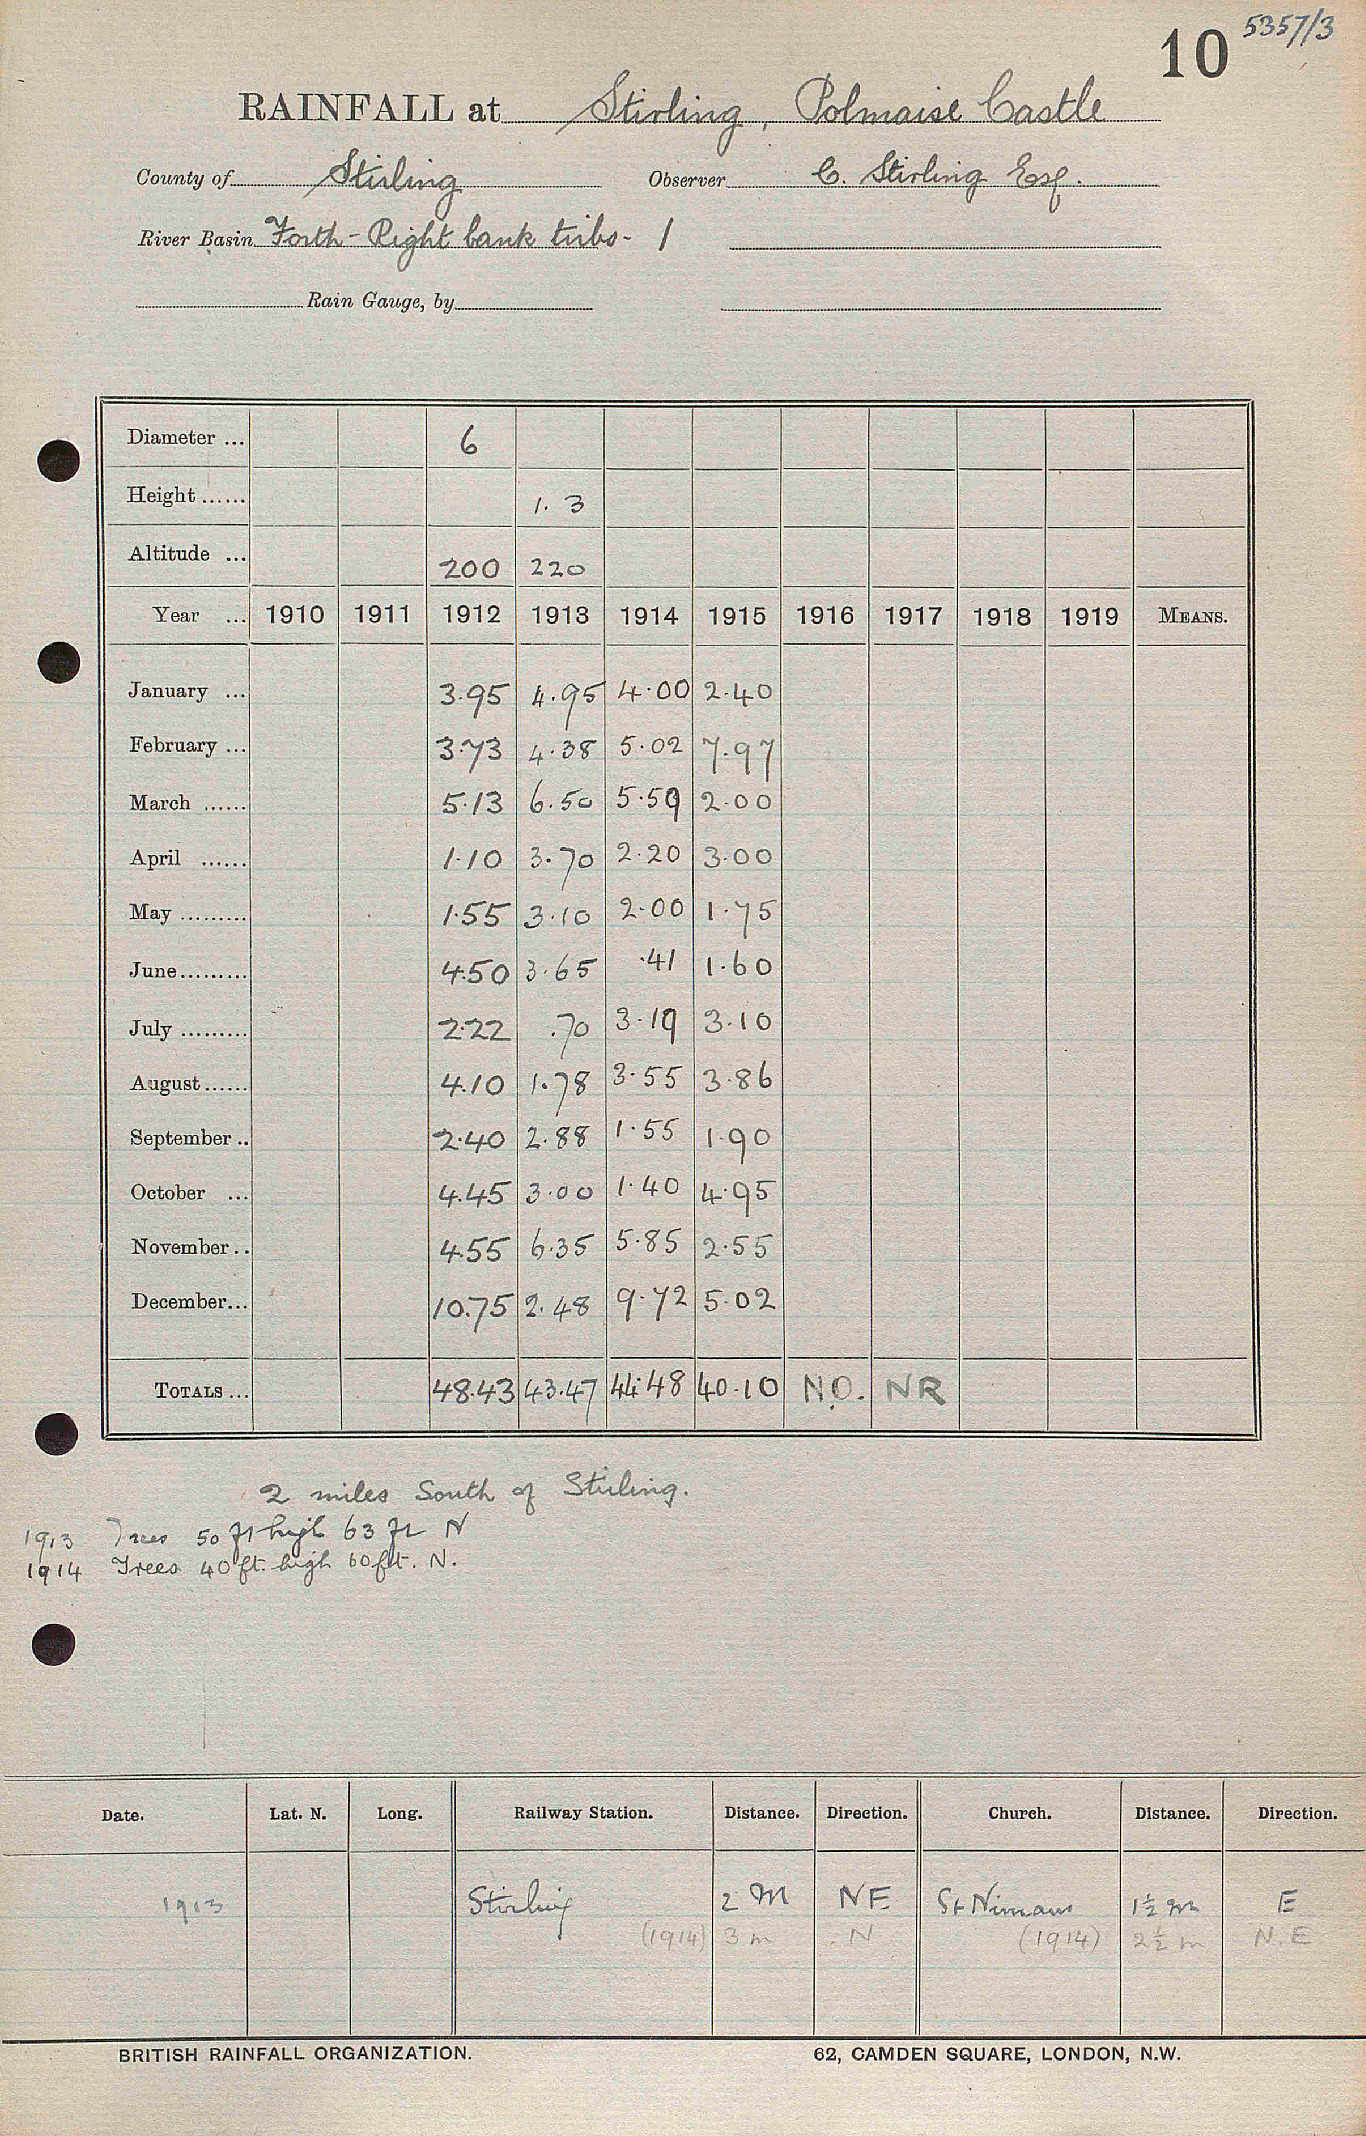 10 5357/3
RAINFALL at Stirling, Polmaise Castle
County of Stirling Observer C. Stirling Esq.
River Basin Forth - Right bank tribs - 1
Rain Gauge, by
Diameter ... 6
Height ...... 1. 3
Altitude ... 200 220
Year ... 1910 1911 1912 1913 1914 1915 1916 1917 1918 1919 MEANS.
January ... 3.95 4.95 4.00 2.40
February ... 3.73 4.38 5.02 7.97
March ...... 5.13 6.50 5.59 2.00
April ...... 1.10 3.70 2.20 3.00
May ......... 1.55 3.10 2.00 1.75
June......... 4.50 3.65 .41 1.60
July ......... 2.22 .70 3.19 3.10
August ...... 4.10 1.78 3.55 3.86
September .. 2.40 2.88 1.55 1.90
October ... 4.45 3.00 1.40 4.95
November .. 4.55 6.35 5.85 2.55
December... 10.75 2.48 9.72 5.02
TOTALS ... 48.43 43.47 44.48 40.10 N.O. NR
2 miles South of Stirling.
1913 Trees 50 ft high 63 ft N
1914 Trees 40 ft. high 60 ft. N.
Date. Lat. N. Long. Railway Station. Distance. Direction. Church. Distance. Direction.
1913 Stirling 2 M NE St Ninians 1½ m E
(1914) 3 m N (1914) 2½ m N.E
BRITISH RAINFALL ORGANIZATION. 62, CAMDEN SQUARE, LONDON, N.W.